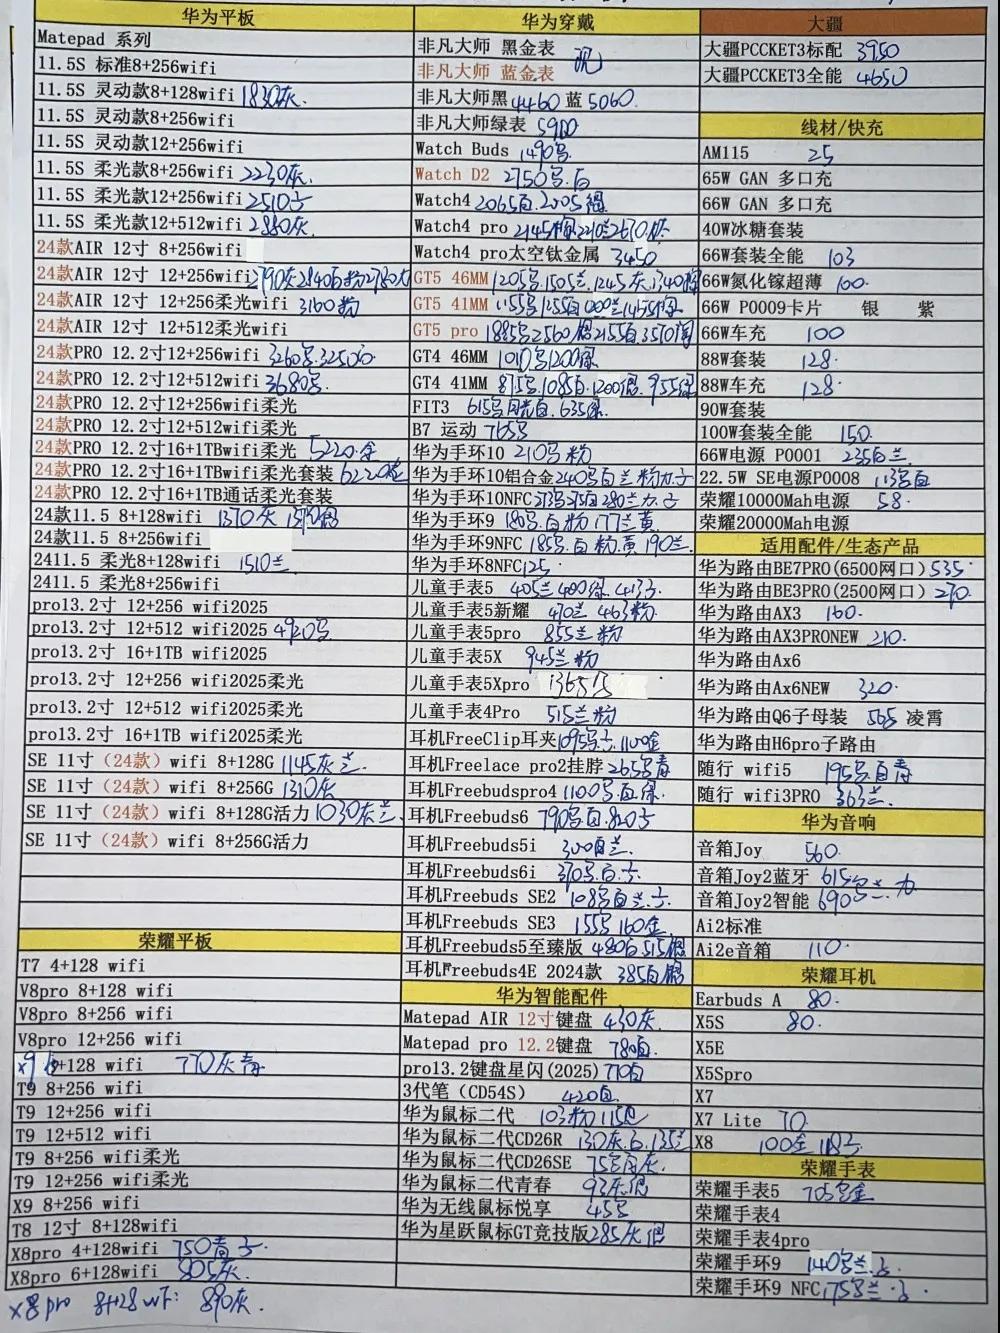 华为平板
Matepad 系列
11.5S 标准8+256wifi
11.5S 灵动款8+128wifi 1830灰.
11.5S 灵动款8+256wifi
11.5S 灵动款12+256wifi
11.5S 柔光款8+256wifi 2230灰.
11.5S 柔光款12+256wifi 2510
11.5S 柔光款12+512wifi 2880灰.
24款AIR 12寸 8+256wifi
24款AIR 12寸 12+256wifi
24款AIR 12寸 12+256柔光wifi 3160粉
24款AIR 12寸 12+512柔光wifi
24款PRO 12.2寸12+256wifi
24款PRO 12.2寸12+512wifi 3680
24款PRO 12.2寸12+256wifi柔光
24款PRO 12.2寸12+512wifi柔光
24款PRO 12.2寸16+1TBwifi柔光 5220.金
24款PRO 12.2寸16+1TBwifi柔光套装 6220
24款PRO 12.2寸16+1TB通话柔光套装
24款11.5 8+128wifi 1370灰
24款11.5 8+256wifi
2411.5 柔光8+128wifi 1510兰
2411.5 柔光8+256wifi
pro13.2寸 12+256 wifi2025
pro13.2寸 12+512 wifi2025 4920
pro13.2寸 16+1TB wifi2025
pro13.2寸 12+256 wifi2025柔光
pro13.2寸 12+512 wifi2025柔光
pro13.2寸 16+1TB wifi2025柔光
SE 11寸（24款）wifi 8+128G 1145灰兰.
SE 11寸（24款）wifi 8+256G 1310灰
SE 11寸（24款）wifi 8+128G活力 1030灰兰.
SE 11寸（24款）wifi 8+256G活力
荣耀平板
T7 4+128 wifi
V8pro 8+128 wifi
V8pro 8+256 wifi
V8pro 12+256 wifi
X9 +128 wifi 770灰青
T9 8+256 wifi
T9 12+256 wifi
T9 12+512 wifi
T9 8+256 wifi柔光
T9 12+256 wifi柔光
X9 8+256 wifi
T8 12寸 8+128wifi
X8pro 4+128wifi 750青
X8pro 6+128wifi 805灰.
x8pro 8+128 wifi 890灰.
华为穿戴
非凡大师 黑金表
非凡大师 蓝金表
非凡大师黑4460 蓝5060.
非凡大师绿表 5900
Watch Buds 1490
Watch D2 2750 白
Watch4 2065白.2005
Watch4 pro 2145
Watch4 pro太空钛金属 3450
GT5 46MM 1205 1505兰.1245灰.
GT5 41MM 1155 1255白
GT5 pro 1885 2560 2155白.3570
GT4 46MM 1010 1200绿
GT4 41MM 875 1085白.1200 955绿
FIT3 615 白.635绿.
B7 运动 765
华为手环10 210 粉
华为手环10铝合金 240 白兰粉
华为手环10NFC 275白 280兰
华为手环9 180 白粉 177兰黄
华为手环9NFC 185 白粉.黄 190兰.
华为手环8NFC 125.
儿童手表5 405兰 400绿. 413
儿童手表5新耀 470兰 463粉
儿童手表5pro 855兰粉
儿童手表5X 945兰粉
儿童手表5Xpro 1365
儿童手表4Pro 515兰粉
耳机FreeClip耳夹 1095 1100金
耳机Freelace pro2挂脖 265 青
耳机Freebudspro4 1100 白.绿.
耳机Freebuds6 790 白.820
耳机Freebuds5i 300白兰.
耳机Freebuds6i 370 白.
耳机Freebuds SE2 108 白兰.
耳机Freebuds SE3 155 160金.
耳机Freebuds5至臻版 480 515
耳机Freebuds4E 2024款 385白
华为智能配件
Matepad AIR 12寸键盘 430灰.
Matepad pro 12.2键盘 780白.
pro13.2键盘星闪(2025) 710白
3代笔（CD54S） 420白
华为鼠标二代 103粉 115
华为鼠标二代CD26R 130灰.白.135兰
华为鼠标二代CD26SE 75 白灰.
华为鼠标二代青春 93灰
华为无线鼠标悦享 45
华为星跃鼠标GT竞技版 285灰
大疆
大疆PCCKET3标配 3950
大疆PCCKET3全能 4650
线材/快充
AM115 25
65W GAN 多口充
66W GAN 多口充
40W冰糖套装
66W套装全能 103
66W氮化镓超薄 100.
66W P0009卡片 银 紫
66W车充 100
88W套装 128.
88W车充 128
90W套装
100W套装全能 150.
66W电源 P0001 235白兰
22.5W SE电源P0008 113 白
荣耀10000Mah电源 58.
荣耀20000Mah电源
适用配件/生态产品
华为路由BE7PRO(6500网口) 535
华为路由BE3PRO(2500网口) 270.
华为路由AX3 160.
华为路由AX3PRONEW 210.
华为路由Ax6
华为路由Ax6NEW 320.
华为路由Q6子母装 565 凌霄
华为路由H6pro子路由
随行 wifi5 195 白青
随行 wifi3PRO 363兰.
华为音响
音箱Joy 560.
音箱Joy2蓝牙 615
音箱Joy2智能 690
Ai2标准
Ai2e音箱 110.
荣耀耳机
Earbuds A 80.
X5S 80.
X5E
X5Spro
X7
X7 Lite 70.
X8 100金
荣耀手表
荣耀手表5 705 金
荣耀手表4
荣耀手表4pro
荣耀手环9 140 兰.
荣耀手环9 NFC 175 兰.